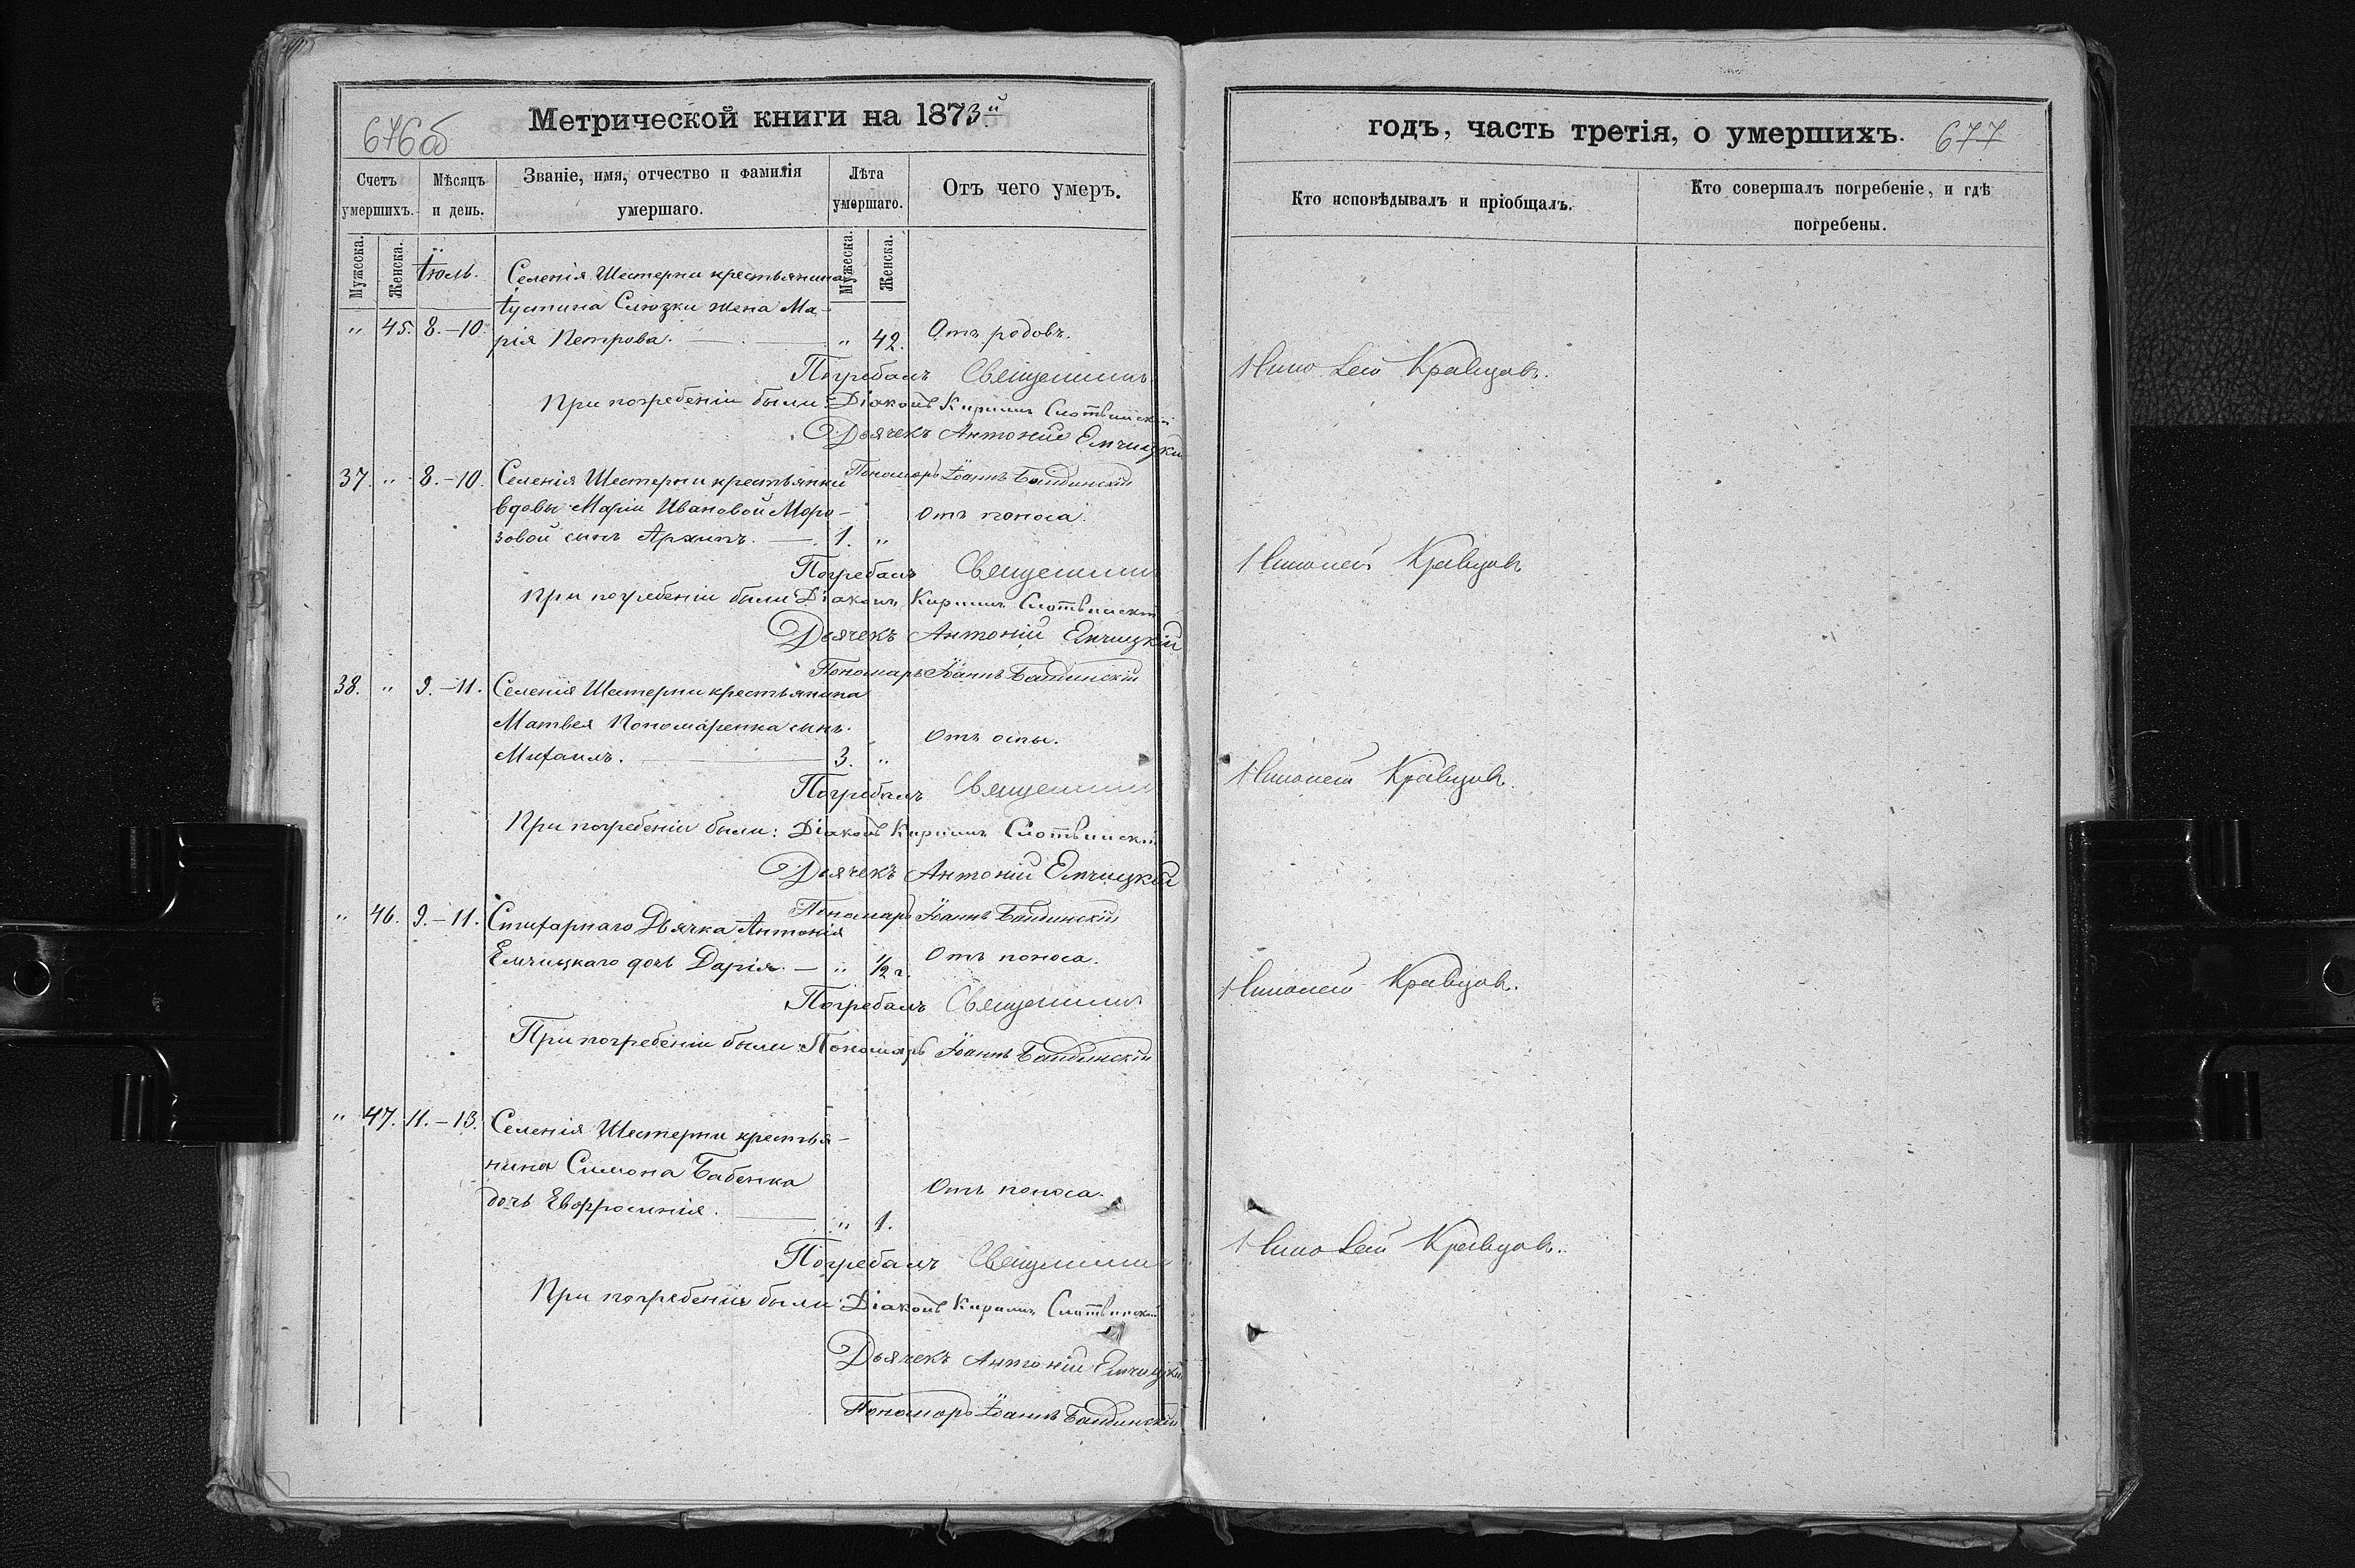 Метрической книги на 1873й
676об
Счетъ умершихъ.
Мѣсяцъ и день.
Званіе, имя, отчество и фамилія умершаго.
Лѣта умершаго.
Отъ чего умеръ.
Мужеска.
Женска.
Мужеска.
Женска.
Іюль.
Селенія Шестерни крестьянина
Іустина Слюзки жена Ма-
" 45. 8.-10. рія Петрова. " 42. Отъ родовъ.
Погребалъ Священникъ
При погребеніи были: Діаконъ Кирилъ Слотвинскій
Дьячекъ Антоній Емчицкій
Пономарь Іоаннъ Бандинскій
37. " 8.-10. Селенія Шестерни крестьянки
вдовы Маріи Ивановой Моро-
Отъ поноса.
зовой сынъ Архипъ. 1. "
Погребалъ Священникъ
При погребеніи были Діаконъ Кирилъ Слотвинскій
Дьячекъ Антоній Емчицкій
Пономарь Іоаннъ Бандинскій
38. " 9.-11. Селенія Шестерни крестьянина
Матвея Пономаренка сынъ
Отъ оспы.
Михаилъ. 3. "
Погребалъ Священникъ
При погребеніи были: Діаконъ Кирилъ Слотвинскій
Дьячекъ Антоній Емчицкій
Пономарь Іоаннъ Бандинскій
" 46. 9.-11. Стихарнаго Дьячка Антонія
Емчицкаго дочь Дарія. " 1/2 г. Отъ поноса.
Погребалъ Священникъ
При погребеніи были: Пономарь Іоаннъ Бандинскій
" 47. 11.-13. Селенія Шестерни крестья-
нина Симона Бабенка
Отъ поноса.
дочь Евфросинія. " 1.
Погребалъ Священникъ
При погребеніи были: Діаконъ Кирилъ Слотвинскій
Дьячекъ Антоній Емчицкій
Пономарь Іоаннъ Бандинскій
годъ, часть третія, о умершихъ.
677
Кто исповѣдывалъ и пріобщалъ.
Кто совершалъ погребеніе, и гдѣ погребены.
Николай Кравцовъ.
Николай Кравцовъ
Николай Кравцовъ.
Николай Кравцовъ.
Николай Кравцовъ.